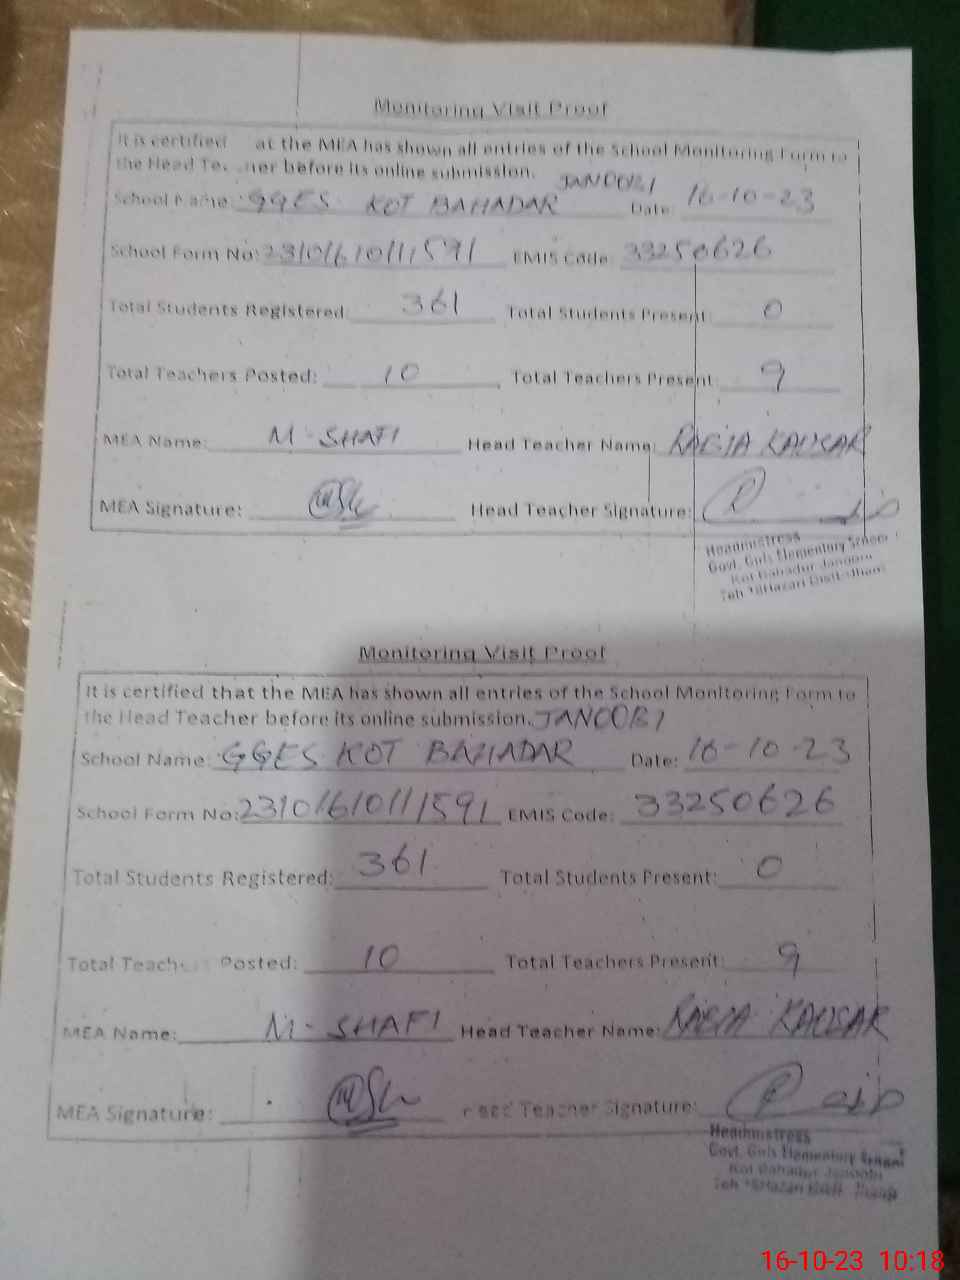 Monitoring Visit Proof
It is certified at the MEA has shown all entries of the School Monitoring Form to
the Head Te. .ner before its online submission.
JANOOBI
School Name: GGES KOT BAHADAR Date: 16-10-23
School Form No: 23101610111591 EMIS Code: 33250626
Total Students Registered: 361 Total Students Present: 0
Total Teachers Posted: 10 Total Teachers Present: 9
MEA Name: M-SHAFI Head Teacher Name: RABIA KAUSAR
MEA Signature: Head Teacher Signature:
Headmistress
Govt. Girls Elementary School
Kot Bahadur Janoobi
Teh 18Hazari Distt. Jhang
Monitoring Visit Proof
It is certified that the MEA has shown all entries of the School Monitoring Form to
the Head Teacher before its online submission. JANOOBI
School Name: GGES KOT BAHADAR Date: 16-10-23
School Form No: 23101610111591 EMIS Code: 33250626
Total Students Registered: 361 Total Students Present: 0
Total Teachers Posted: 10 Total Teachers Present: 9
MEA Name: M-SHAFI Head Teacher Name: RABIA KAUSAR
MEA Signature: Head Teacher Signature:
Headmistress
Govt. Girls Elementary School
Kot Bahadur Janoobi
Teh 18Hazari Distt. Jhang
16-10-23 10:18